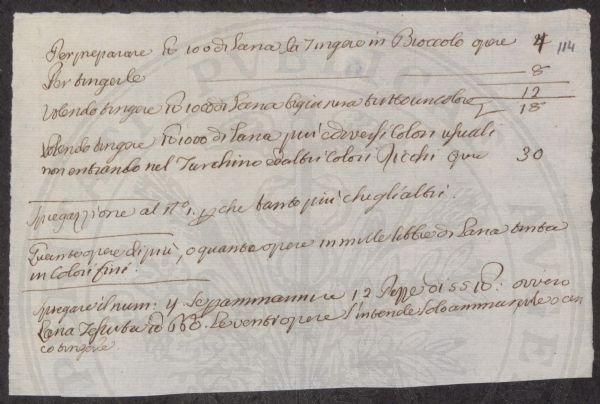 Per preparare lb 100 di Lana da Tingere in Broccolo opere 4 114
Per tingerle 8
12
Volendo tingere lb 1000 di Lana bigia una tutto un colore 18
Volendo tingere lb 1000 di Lana più e diversi colori usuali
non entrando nel Turchino ed altri colori Ricchi opre 30
Spiegazzione al nº. 1. p che tanto più che gli altri.
Quante opere di più, o quante opere in mille libbre di Lana tinta
in Colori fini.
Spiegare il num: 4 12 Pezze di 55 lb: ovvero
Lana Tessuta lb 660. Le venti opere s'intende solo o an
co tingerle